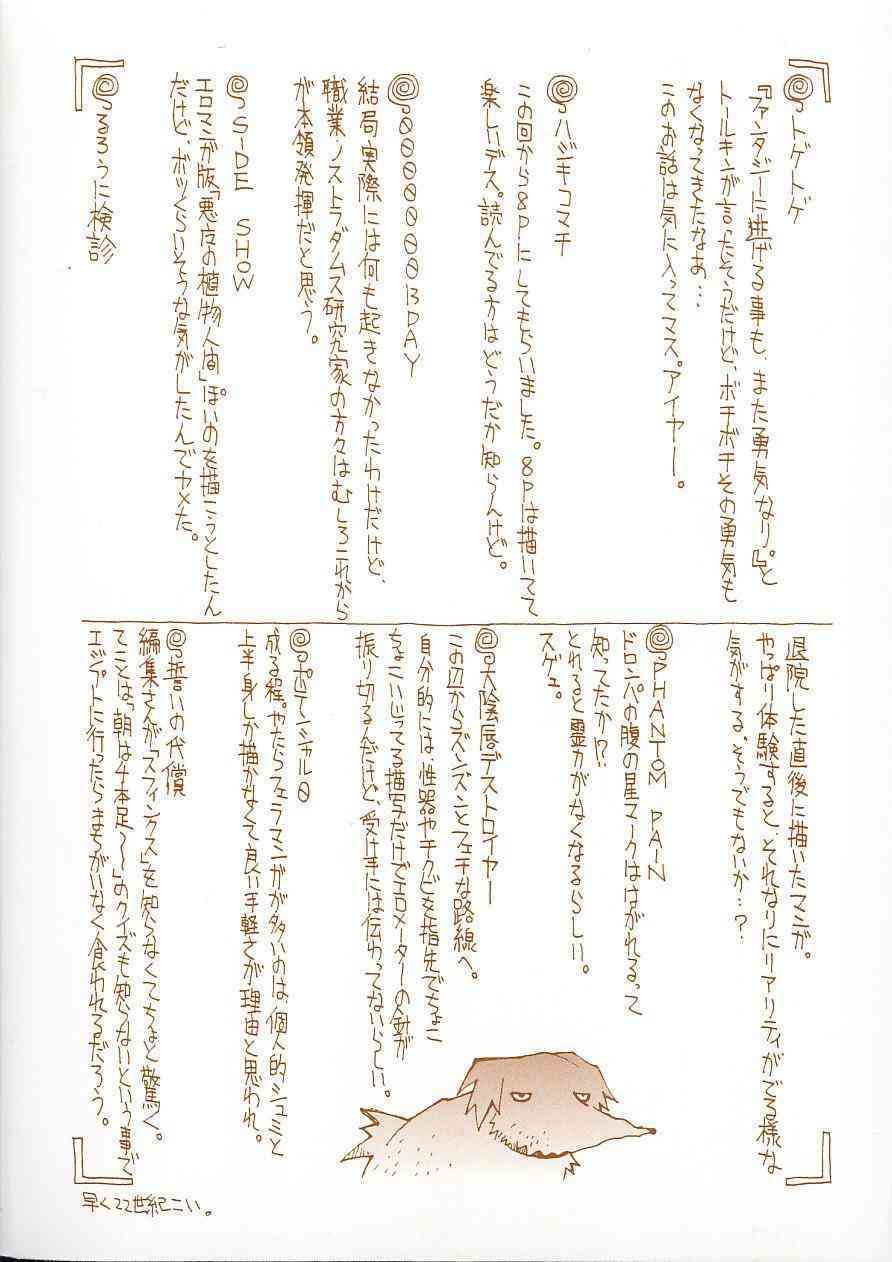 トゲトゲ
『ファンタジーに逃げる事も、また勇気なり。』と
トールキンが言ったそうだけど、ボチボチその勇気も
なくなってきたなあ…
このお話は気に入ってマス。アイヤー。
ハジキコマチ
この回から8Pにしてもらいました。8Pは描いてて
楽しいデス。読んでる方はどうだか知らんけど。
0000000BDAY
結局、実際には何も起きなかったわけだけど、
職業・ノストラダムス研究家の方々はむしろこれから
が本領発揮だと思う。
SIDE SHOW
エロマンガ版「悪夜の植物人間」ぽいのを描こうとしたん
だけど、ボツくらいそうな気がしたんでヤメた。
るろうに検診
退院した直後に描いたマンガ。
やっぱり体験すると、それなりにリアリティがでる様な
気がする。そうでもないか…?
PHANTOM PAIN
ドロンパの腹の星マークははがれるって
知ってたか!?
とれると霊力がなくなるらしい。
スゲェ。
大陰唇デストロイヤー
この辺からズンズンとフェチな路線へ。
自分的には、性器やチクビを指先でちょこ
ちょこいじってる描写だけでエロメーターの針が
振り切るんだけど、受け手には伝わってないらしい。
ポテンシャル0
成る程。やたらフェラマンガが多いのは、個人的シュミと
上半身しか描かなくて良い手軽さが理由と思われ。
誓いの代償
編集さんが「スフィンクス」を知らなくてちょと驚く。
てことは、「朝は4本足〜」のクイズも知らないという事で
エジプトに行ったらまちがいなく食われるだろう。
早く22世紀こい。